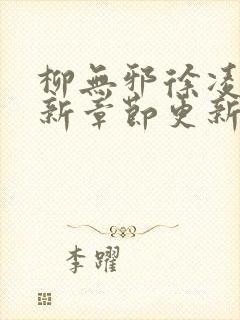 柳無邪徐凌
新章節更新
李躍